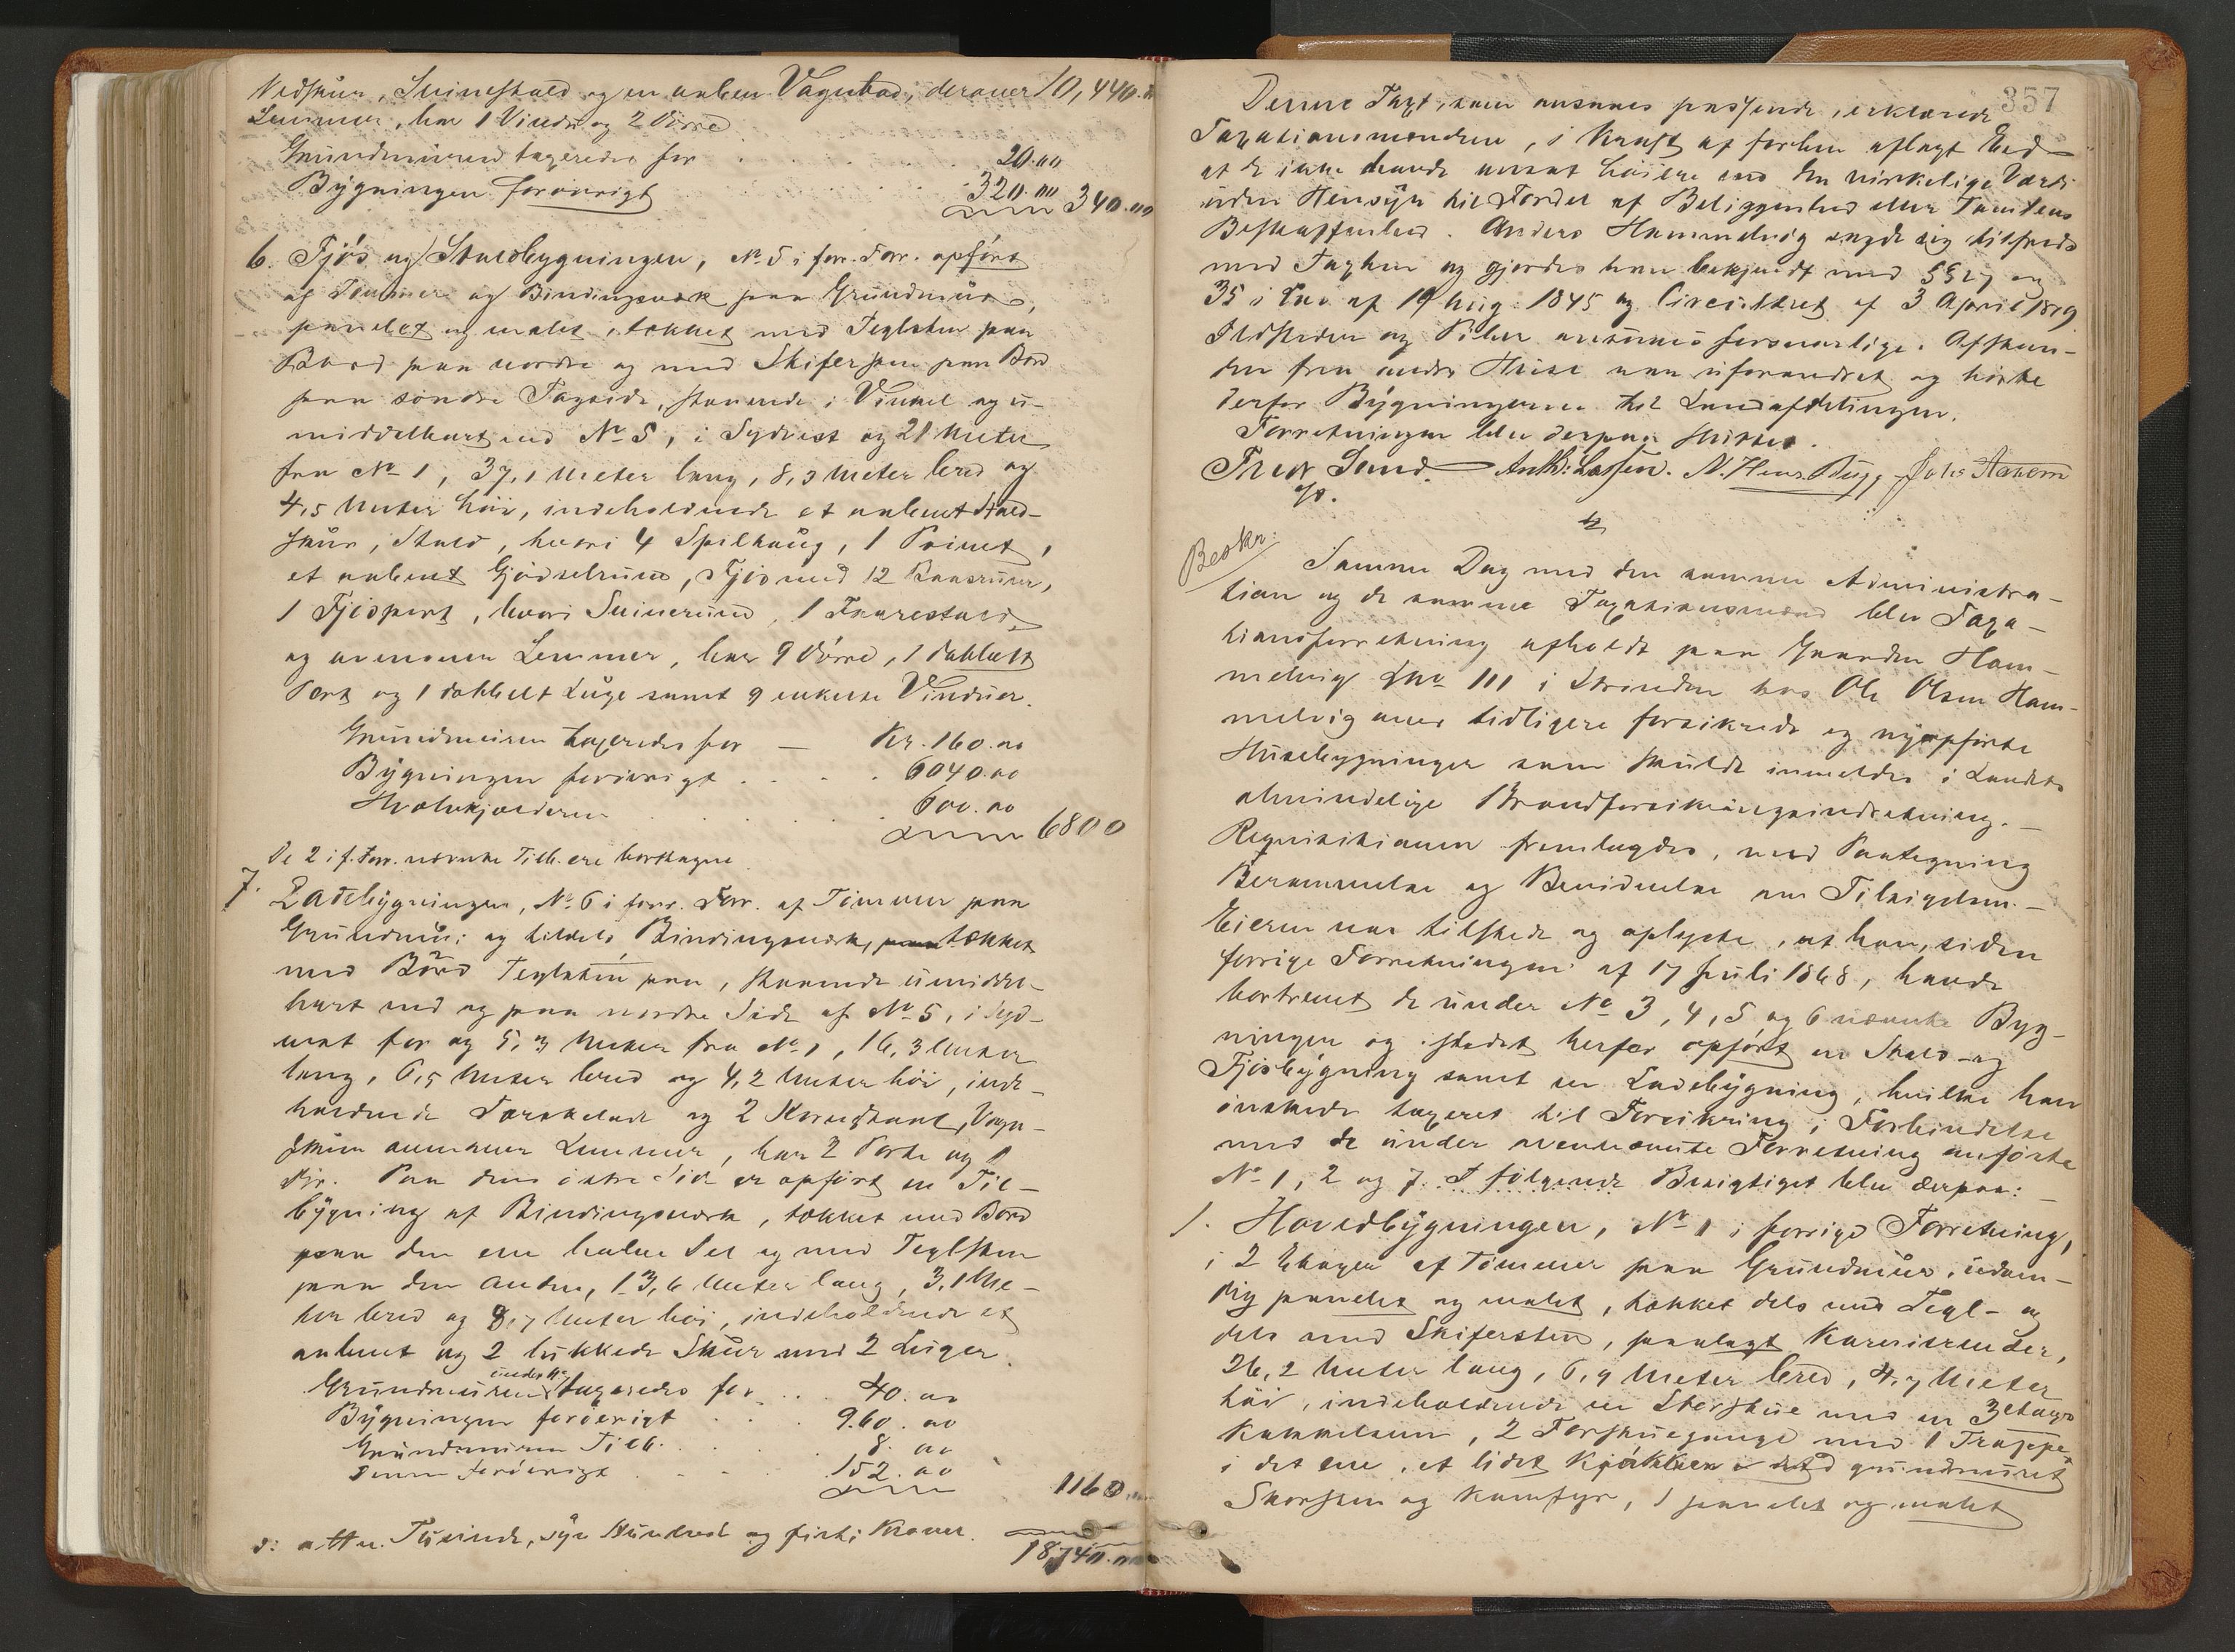 Vedskur, Svinestald og en aaben Vognbod, derover 10,440.00
Lemmer, har 1 Vindu og 2 Dörre
Grundmuren taxeredes for 20.00
Bygningen forövrigt 320.00 340.00
6. Fjös og Staldbygningen, No 5 i forr. Forr. opfört
af Tömmer og Bindingsværk paa Grundmur,
panelet og malet, tækket med Teglsten paa
Bord paa nordre og med Skifersten paa Bord
paa söndre Tagside, staaende i Vinkel og u-
middelbart ved No 5, i Sydvest og 21 Meter
fra No 1, 37,1 Meter lang, 8,3 Meter bred og
4,5 Meter höi, indeholdende et aabent Stald-
skur, Stald, hvori 4 Spiltaug, 1 Privet,
et aabent Gjödselrum, Fjös med 12 Baasrum,
1 Fjöspart, hvori Svinerum, 1 Faarestald,
og ovenover Lemmer, har 9 Dörre, 1 dobbelt
Port og 1 dobbelt Luge samt 9 enkelte Vinduer.
Grundmuren taxeredes for — Kr. 160.00
Bygningen forövrigt 6040.00
Hvalvkjælderen 600.00
6800
De 2 i f. Forr. nævnte Tilb. ere borttagne.
7. Ladebygningen, No 6 i forr. Forr. af Tömmer paa
Grundmur og tildels Bindingsværk, tækket
med Bord Teglsten paa, staaende umiddel-
bart ved og paa nordre Side af No 5, i Syd-
vest for og 5,3 Meter fra No 1, 16,3 Meter
lang, 6,5 Meter bred og 4,2 Meter höi, inde-
holdende Tærskelade og 2 Kornstaal, Vogn-
skur ovenover Lemmer, har 2 Porte og 1
Dör. Paa den östre Side er opfört en Til-
bygning af Bindingsværk, tækket med Bord
paa den ene halve Del og med Teglsten
paa den anden, 13,6 Meter lang, 3,1 Me-
ter bred og 2,7 Meter höi, indeholdende et
aabent og 2 lukkede Skur med 2 Luger.
Grundmuren taxeredes for 40.00
Bygningen forövrigt 960.00
Grundmuren Tilb. 8.00
Denne forövrigt 152.00
1160.00
d: atten Tusinde, syv Hundrede og firti Kroner. 18,740.00
357
Denne Taxt, som ansaaes passende, erklærede
Taxationsmændene, i Kraft af forhen aflagt Ed
at de ikke havde ansat höiere end den virkelige Værdi
uden Hensyn til Fordel af Beliggenhed eller Tomtens
Beskaffenhed. Anders Hammelvig sagde sig tilfreds
med Taxten og gjordes han bekjendt med §§ 27 og
35 i Lov af 19 Aug. 1845 og Circulæret af 3 April 1879
Ildsteder og Piber ansaaes forsvarlige. Afstan-
den fra andre Huse var uforandret og hörte
derfor Bygningerne til Landafdelingen.
Forretningen blev derpaa sluttet.
Fredr Lund. Anth: Lassen. N. Hens. Bugge Johs Aakerv
Beskr:
Samme Dag med den samme Administra-
tion og de samme Taxationsmænd blev Taxa-
tionsforretning afholdt paa Gaarden Ham-
melvig Lno 111 i Strinden hos Ole Olsen Ham-
melvig over tidligere forsikrede og nyopförte
Husebygninger som skulde inmeldes i Landets
almindelige Brandforsikringsindretning. —
Requisitionen fremlagdes, med Paategning
Berammelse og Bevidnelse om Tilsigelsen. —
Eieren var tilstede og oplyste, at han, siden
forrige Forretningen af 17 Juli 1868, havde
bortrevet de under No 3, 4, 5 og 6 nævnte Byg-
ninger og istedet herfor opfört en Stald- og
Fjösbygning samt en Ladebygning, hvilke han
önskede taxeret til Forsikring, i Forbindelse
med de under ovennævnte Forretning anförte
No 1, 2 og 7. I fölgende Besigtiget blev derpaa: —
1. Hovedbygningen, No 1 i forrige Forretning,
i 2 Etager af Tömmer paa Grundmur, udven-
dig panelet og malet, tækket dels med Tegl- og
dels med Skifersten, paalagt Karnisrender,
26,2 Meter lang, 6,9 Meter bred, 4,7 Meter
höi, indeholdende en Storstue med en 3 etages
Kakkelovn, 2 Forstuegange med 1 Trappe
i det ene, et lidet Kjökken med grundmuret
Skorsten og Komfyr, 1 panelet og malet